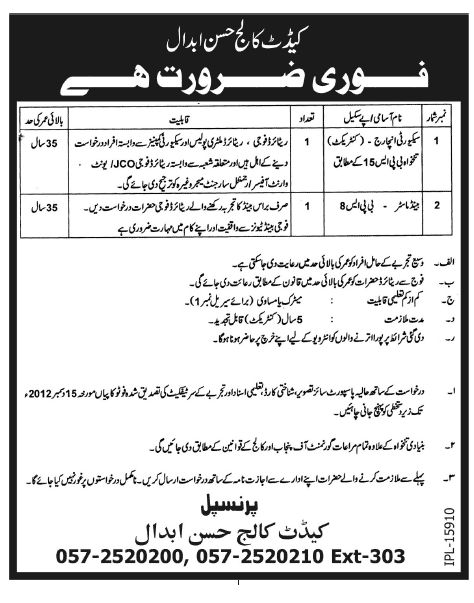 کیڈٹ کالج حسن ابدال
فوری ضرورت ہے
نمبر شمار نام آسامی / پے سکیل تعداد قابلیت بالائی عمر کی حد
1 سکیورٹی انچارج - (کنٹریکٹ) 1 ریٹائرڈ فوجی، ریٹائرڈ ملٹری پولیس اور سکیورٹی کمپنیز سے وابستہ افراد درخواست 35 سال
تنخواہ بی پی ایس 15 کے مطابق دینے کے اہل ہیں اور متعلقہ شعبہ سے وابستہ ریٹائرڈ فوجی JCO/ یونٹ
وارنٹ آفیسر / جمنٹل سارجنٹ میجر وغیرہ کو ترجیح دی جائے گی۔
2 بینڈ ماسٹر - بی پی ایس 8 1 صرف براس بینڈ کا تجربہ رکھنے والے ریٹائرڈ فوجی حضرات درخواست دیں۔ 35 سال
فوجی بینڈ ٹیونز سے واقفیت اور اپنے کام میں مہارت ضروری ہے
الف۔ وسیع تجربے کے حامل افراد کو عمر کی بالائی حد میں رعایت دی جا سکتی ہے۔
ب۔ فوج سے ریٹائرڈ حضرات کو عمر کی بالائی حد میں قانون کے مطابق رعایت دی جائے گی۔
ج۔ کم از کم تعلیمی قابلیت : میٹرک یا مساوی (برائے سیریل نمبر 1)۔
د۔ مدت ملازمت : 5 سال (کنٹریکٹ) قابل تجدید۔
ر۔ دی گئی شرائط پر پورا اترنے والوں کو انٹرویو کے لیے اپنے خرچ پر حاضر ہونا ہوگا۔
۱۔ درخواست کے ساتھ حالیہ پاسپورٹ سائز تصویر، شناختی کارڈ، تعلیمی اسناد اور تجربے کے سرٹیفکیٹ کی تصدیق شدہ فوٹو کاپیاں مورخہ 15 دسمبر 2012ء
تک زیر دستخطی کو پہنچ جانی چاہئیں۔
۲۔ بنیادی تنخواہ کے علاوہ تمام مراعات گورنمنٹ آف پنجاب اور کالج کے قوانین کے مطابق دی جائیں گی۔
۳۔ پہلے سے ملازمت کرنے والے حضرات اپنے ادارے سے اجازت نامہ کے ساتھ درخواست ارسال کریں۔ نامکمل درخواستوں پر غور نہیں کیا جائے گا۔
پرنسپل
کیڈٹ کالج حسن ابدال
057-2520200, 057-2520210 Ext-303
IPL-15910